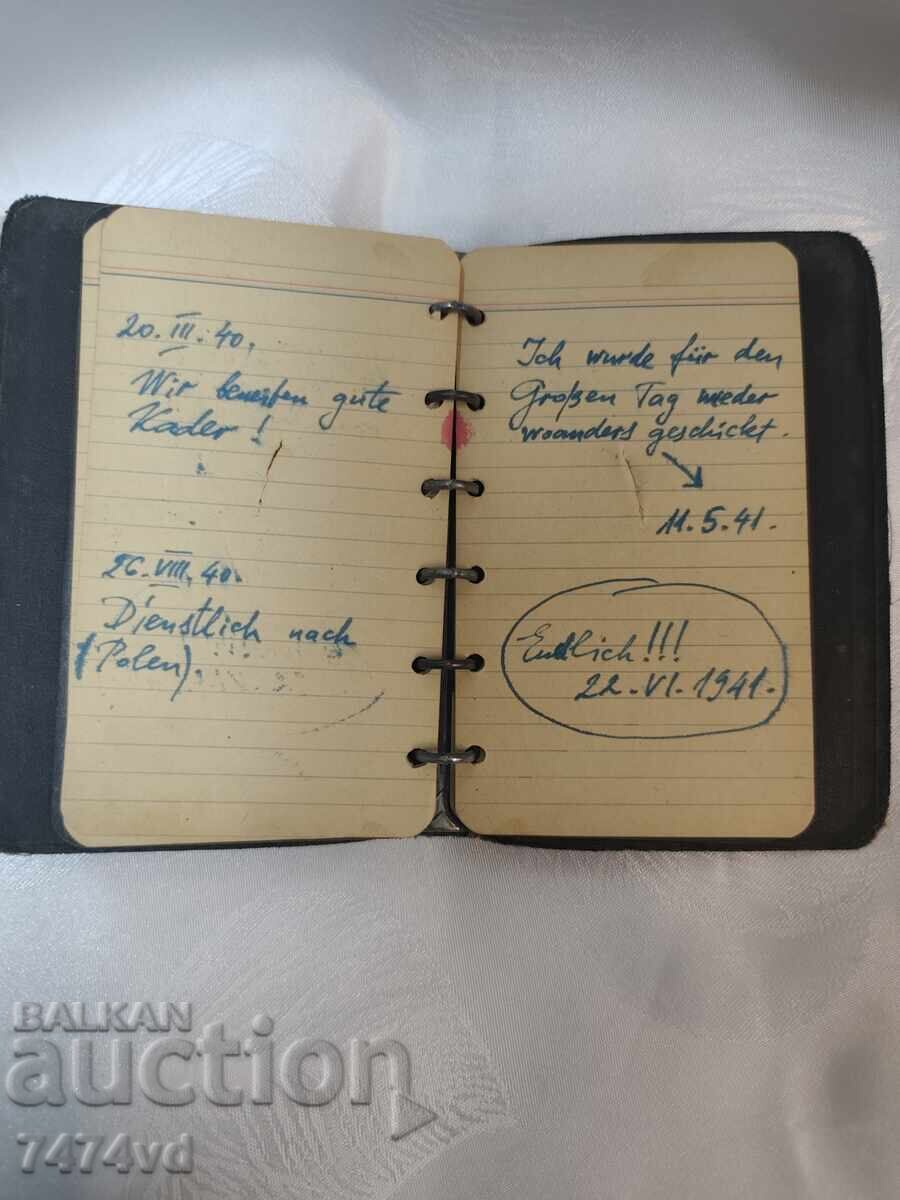 20. III. 40.
Wir gute
Kader!
26. VIII. 40.
Dienstlich nach
(Polen).
Ich wurde für den
Großen Tag wieder
woanders geschickt.
11.5.41.
Endlich!!!
22. VI. 1941.
BALKAN
auction
7474vd